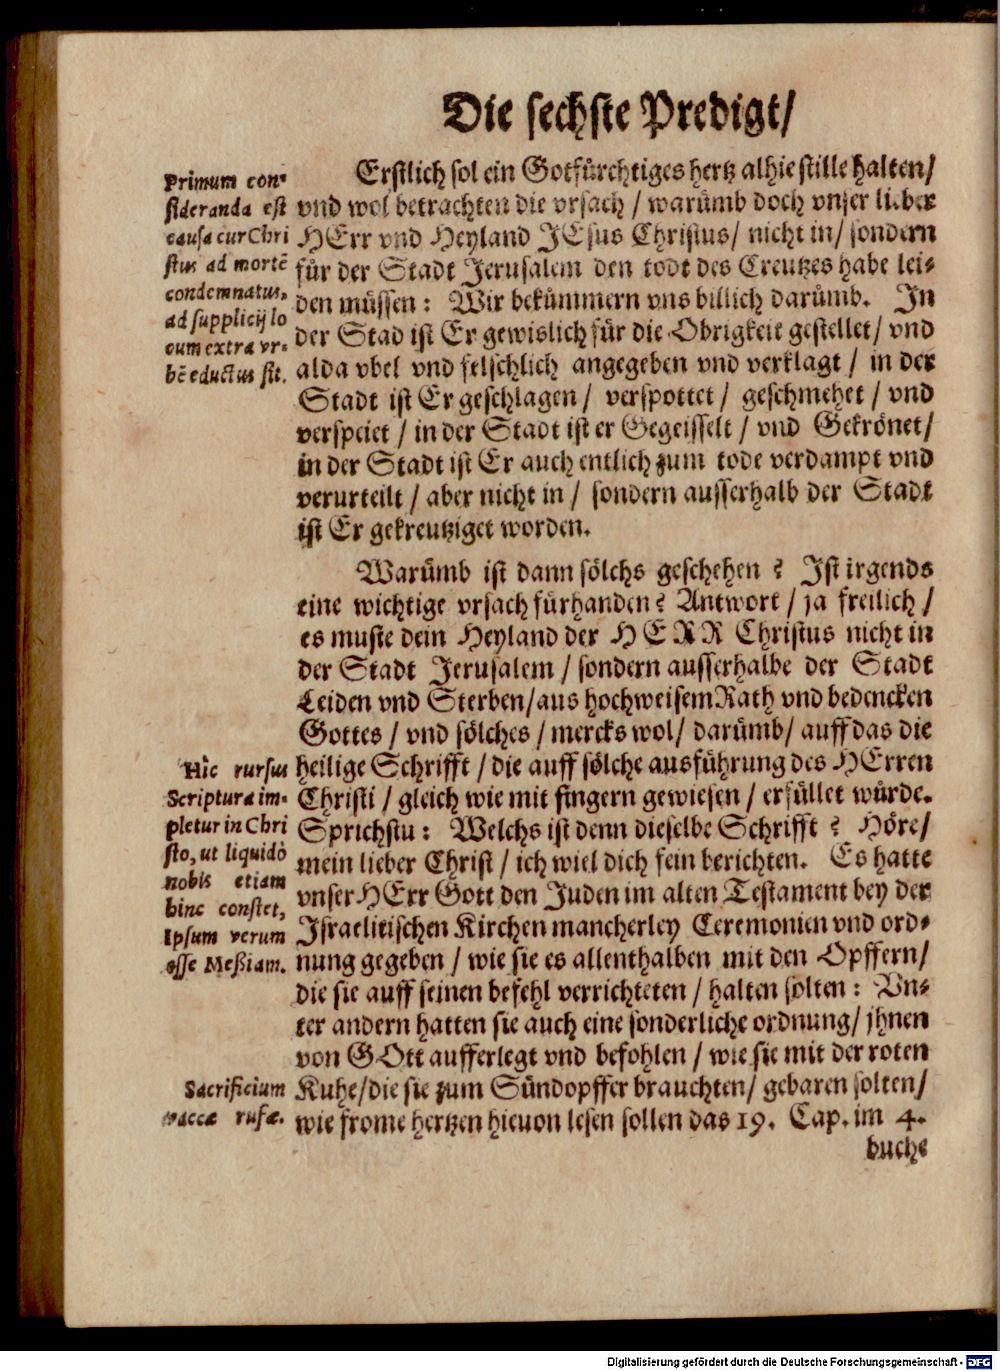 Die sechste Predigt/
Primum con-
sideranda est
causa cur Chri
stus ad mortē
condemnatus,
ad supplicij lo
cum extra vr-
bē eductus sit.
Erstlich sol ein Gotfürchtiges hertz alhie stille halten/
vnd wol betrachten die vrsach / warůmb doch vnser lieber
HErr vnd Heyland JEsus Christus/ nicht in/ sondern
für der Stadt Jerusalem den todt des Creutzes habe lei-
den müssen: Wir bekümmern vns billich darůmb. In
der Stad ist Er gewislich für die Obrigkeit gestellet/ vnd
alda vbel vnd felschlich angegeben vnd verklagt / in der
Stadt ist Er geschlagen / verspottet / geschmehet / vnd
verspeiet / in der Stadt ist er Gegeisselt / vnd Gekrönet/
in der Stadt ist Er auch entlich zum tode verdampt vnd
verurteilt / aber nicht in / sondern ausserhalb der Stadt
ist Er gekreutziget worden.
Warůmb ist dann sölchs geschehen ? Ist irgends
eine wichtige vrsach fürhanden? Antwort / ja freilich /
es muste dein Heyland der HERR Christus nicht in
der Stadt Jerusalem / sondern ausserhalbe der Stadt
Leiden vnd Sterben/aus hochweisem Rath vnd bedencken
Gottes / vnd sölches / mercks wol/ darůmb/ auff das die
heilige Schrifft / die auff sölche ausführung des HErren
Christi / gleich wie mit fingern gewiesen / erfüllet würde.
Sprichstu: Welchs ist denn dieselbe Schrifft ? Höre/
mein lieber Christ / ich wiel dich fein berichten. Es hatte
vnser HErr Gott den Juden im alten Testament bey der
Israelitischen Kirchen mancherley Ceremonien vnd ord-
nung gegeben / wie sie es allenthalben mit den Opffern/
die sie auff seinen befehl verrichteten / halten solten: Vn-
ter andern hatten sie auch eine sonderliche ordnung/ jhnen
von GOtt aufferlegt vnd befohlen / wie sie mit der roten
Kuhe/die sie zum Sündopffer brauchten/ gebaren solten/
wie frome hertzen hieuon lesen sollen das 19. Cap. im 4.
buche
Hîc rursus
Scriptura im-
pletur in Chri
sto, ut liquidò
nobis etiam
hinc constet,
Ipsum verum
esse Meßiam.
Sacrificium
vaccæ rufæ.
Digitalisierung gefördert durch die Deutsche Forschungsgemeinschaft - DFG